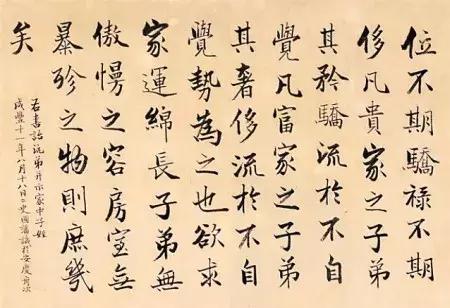 位不期驕祿不期
侈凡貴家之子弟
其矜驕流於不自
覺凡富家之子弟
其奢侈流於不自
覺勢為之也欲求
家運綿長子弟無
傲慢之容房室無
暴殄之物則庶幾
矣
右書詒沅弟並示家中子姪
咸豐十一年八月十八日二更國藩識於安慶舟次